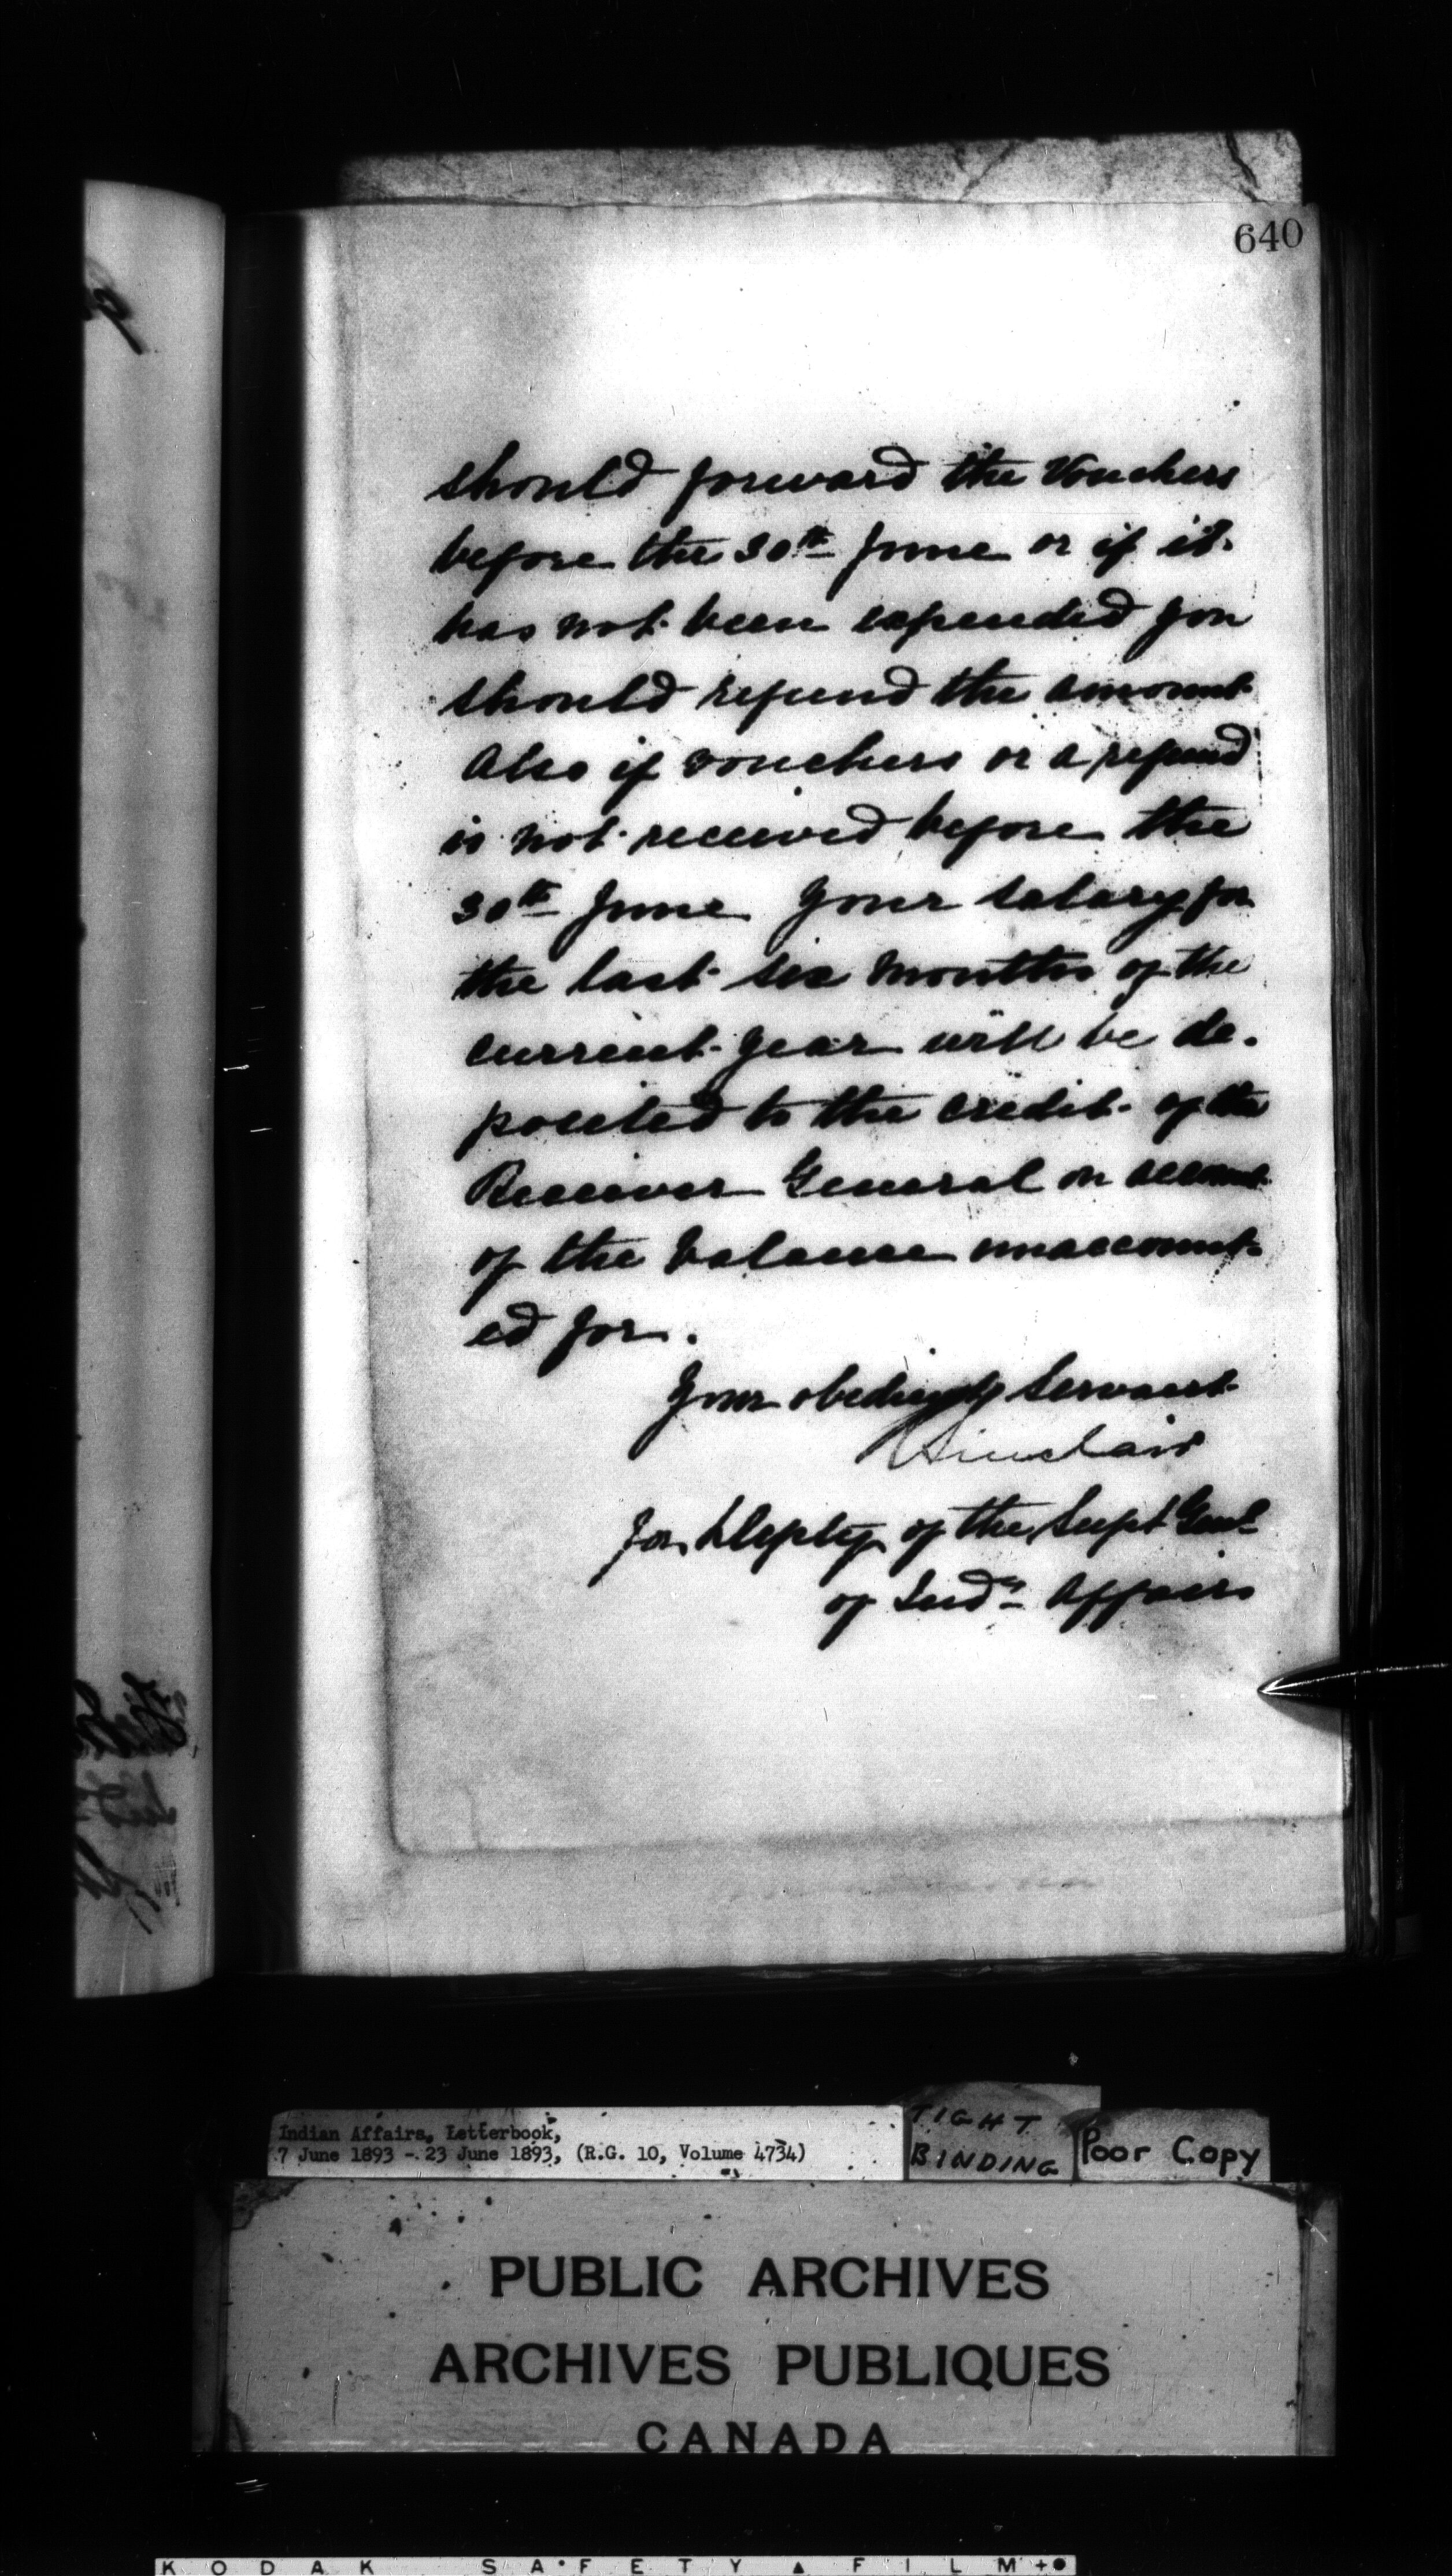 640
should forward the Vouchers
before the 30th June or if it
has not been expended you
should refund the amount
Also if vouchers or a refund
is not received before the
30th June your salary for
the last six months of the
current year will be de-
posited to the credit of the
Receiver General on account
of the balance unaccount-
ed for.
Your obedient Servant
Sinclair
for Deputy of the Supt Genl
of Indn Affairs
Indian Affairs, Letterbook,
7 June 1893 - 23 June 1893, (R.G. 10, Volume 4734)
TIGHT
BINDING
Poor Copy
PUBLIC ARCHIVES
ARCHIVES PUBLIQUES
CANADA
KODAK SAFETY FILM